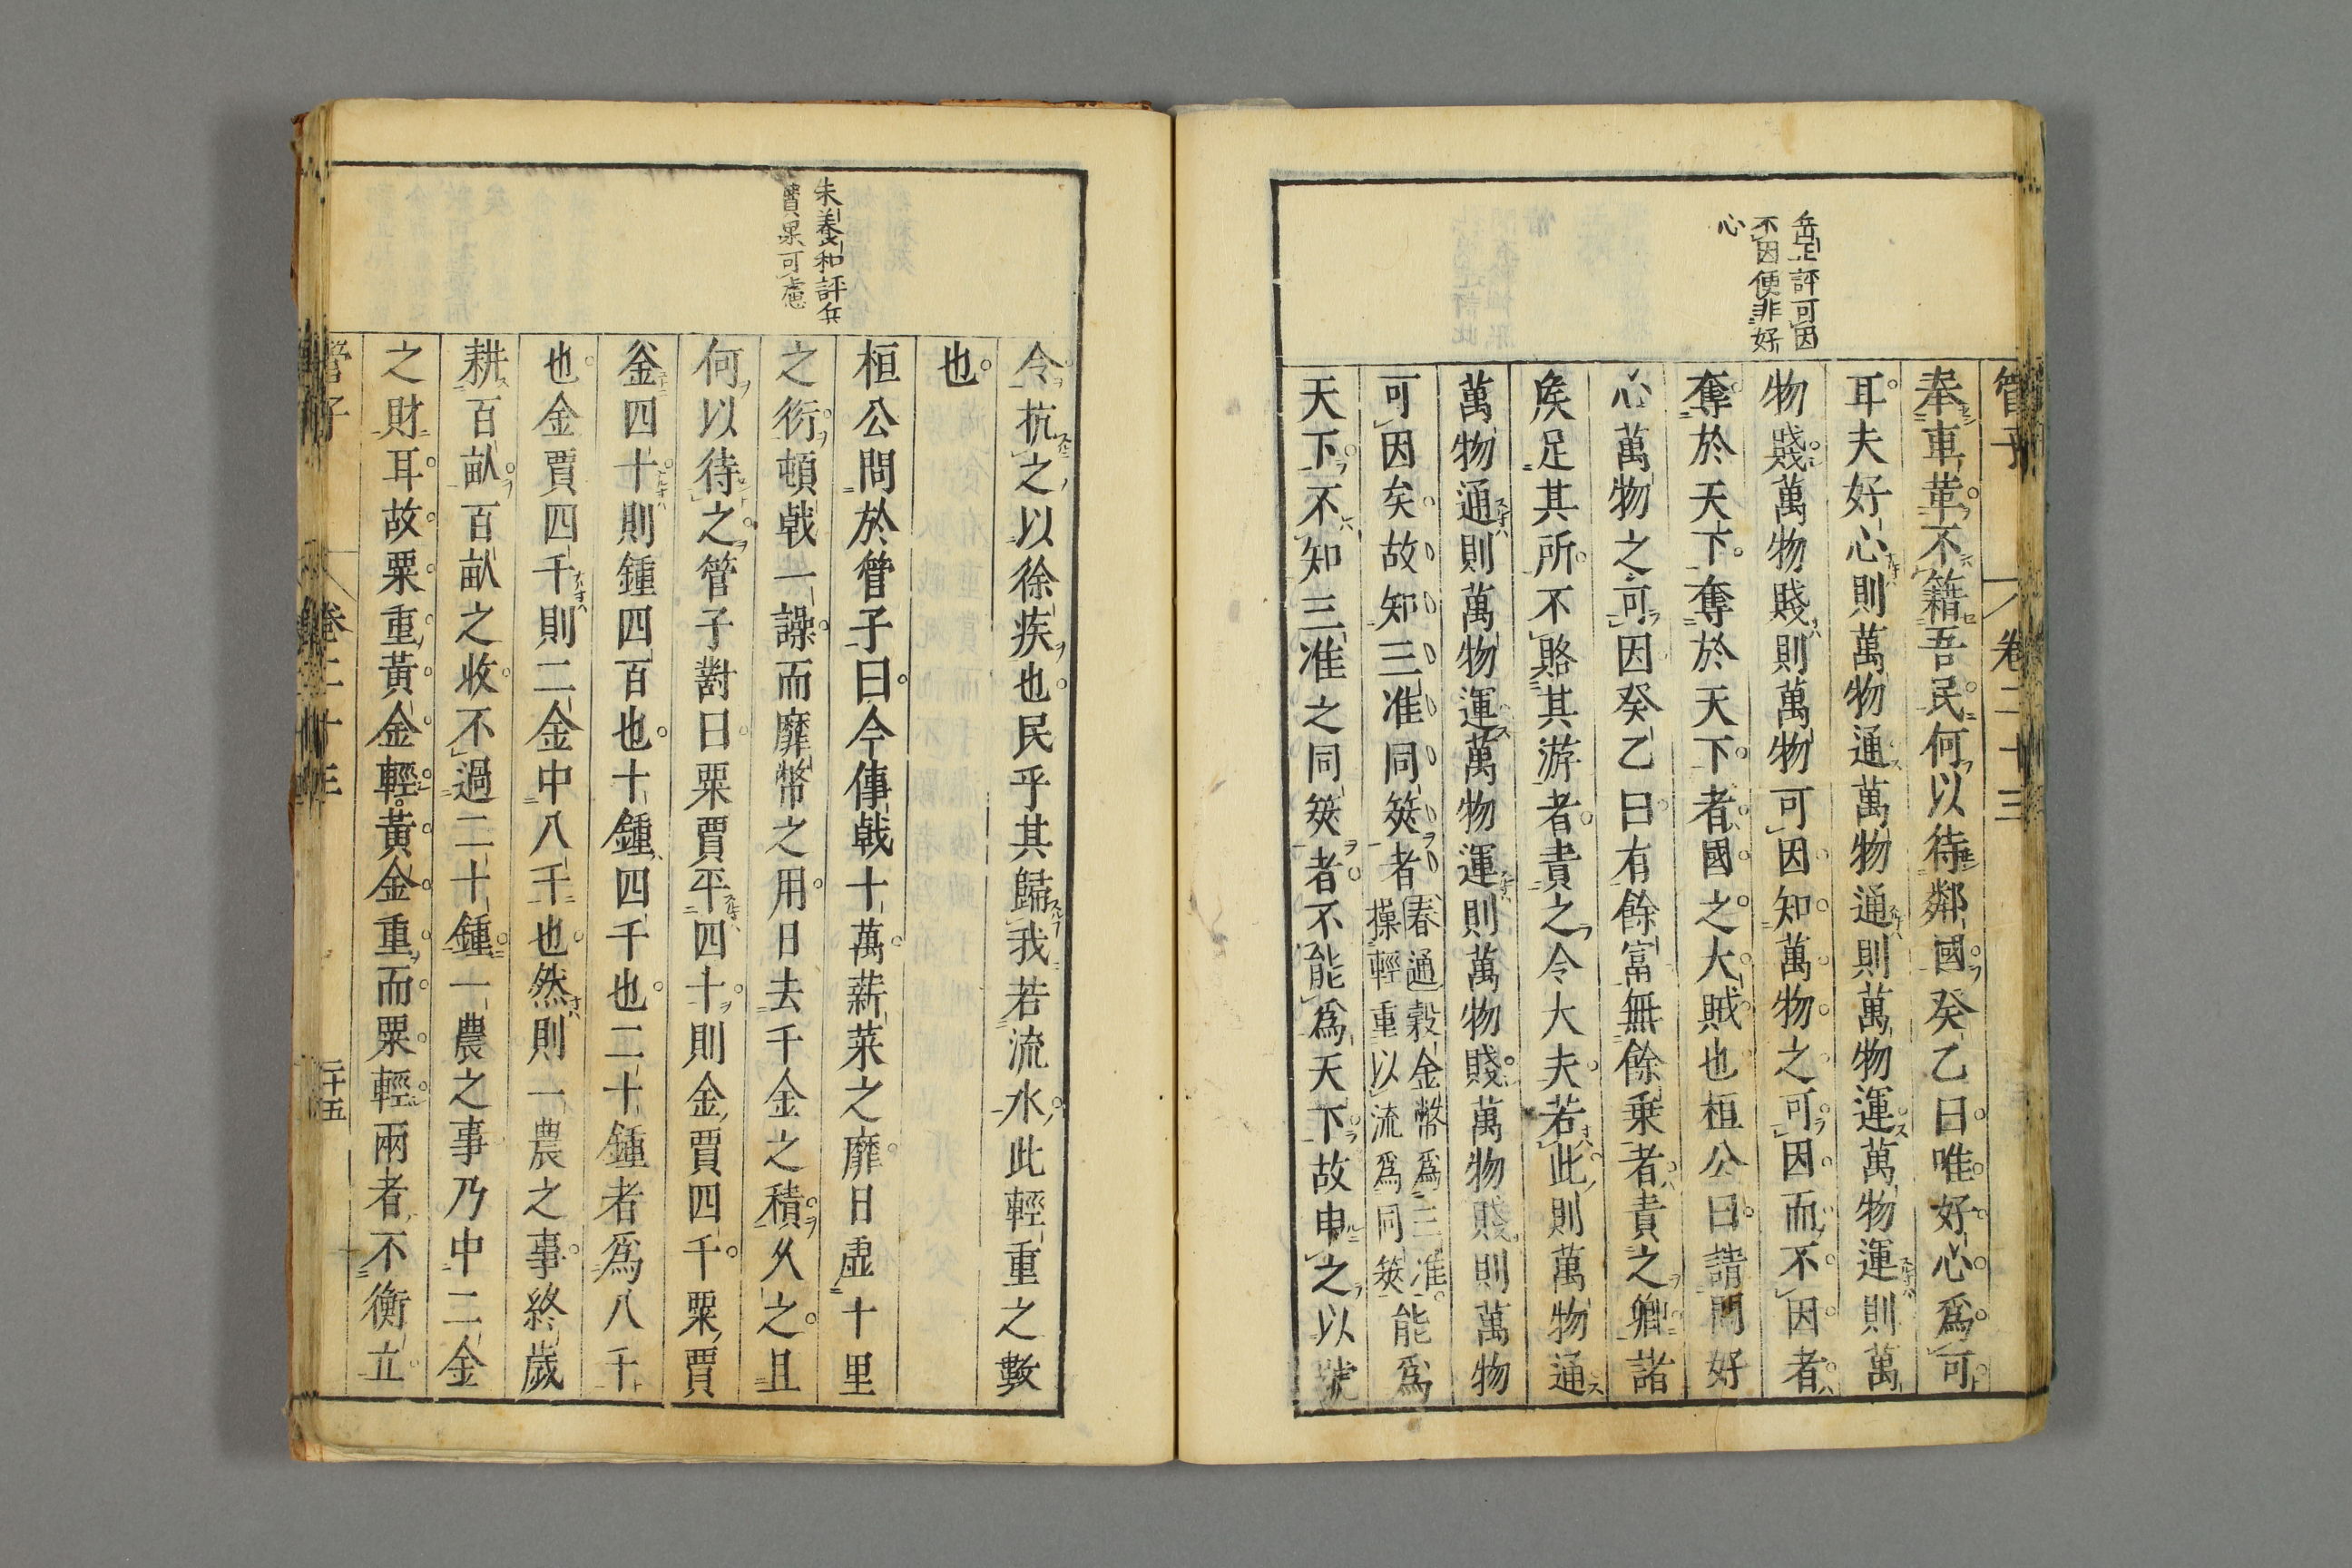 管子
卷二十三
岳正評可因
不因便非好
心
奉車革不籍吾民何以待鄰國癸乙曰唯好心爲可
耳夫好心則萬物通萬物通則萬物運萬物運則萬
物賤萬物賤則萬物可因知萬物之可因而不因者
奪於天下奪於天下者國之大賊也桓公曰請問好
心萬物之可因癸乙曰有餘富無餘乗者責之卿諸
矦足其所不賂其游者責之令大夫若此則萬物通
萬物通則萬物運萬物運則萬物賤萬物賤則萬物
可因矣故知三准同筴者春通穀金幣爲三准
操輕重以流爲同筴能爲
天下不知三准之同筴者不能爲天下故申之以號
朱養和評兵
費果可慮
令抗之以徐疾也民乎其歸我若流水此輕重之數
也
桓公問於管子曰今傳戟十萬薪菜之靡日虛十里
之衍頓戟一譟而靡幣之用日去千金之積乆之且
何以待之管子對曰粟賈平四十則金賈四千粟賈
釡四十則鍾四百也十鍾四千也二十鍾者爲八千
也金賈四千則二金中八千也然則一農之事終歲
耕百畝百畝之收不過二十鍾一農之事乃中二金
之財耳故粟重黃金輕黃金重而粟輕兩者不衡立
管子
卷二十三
二十五